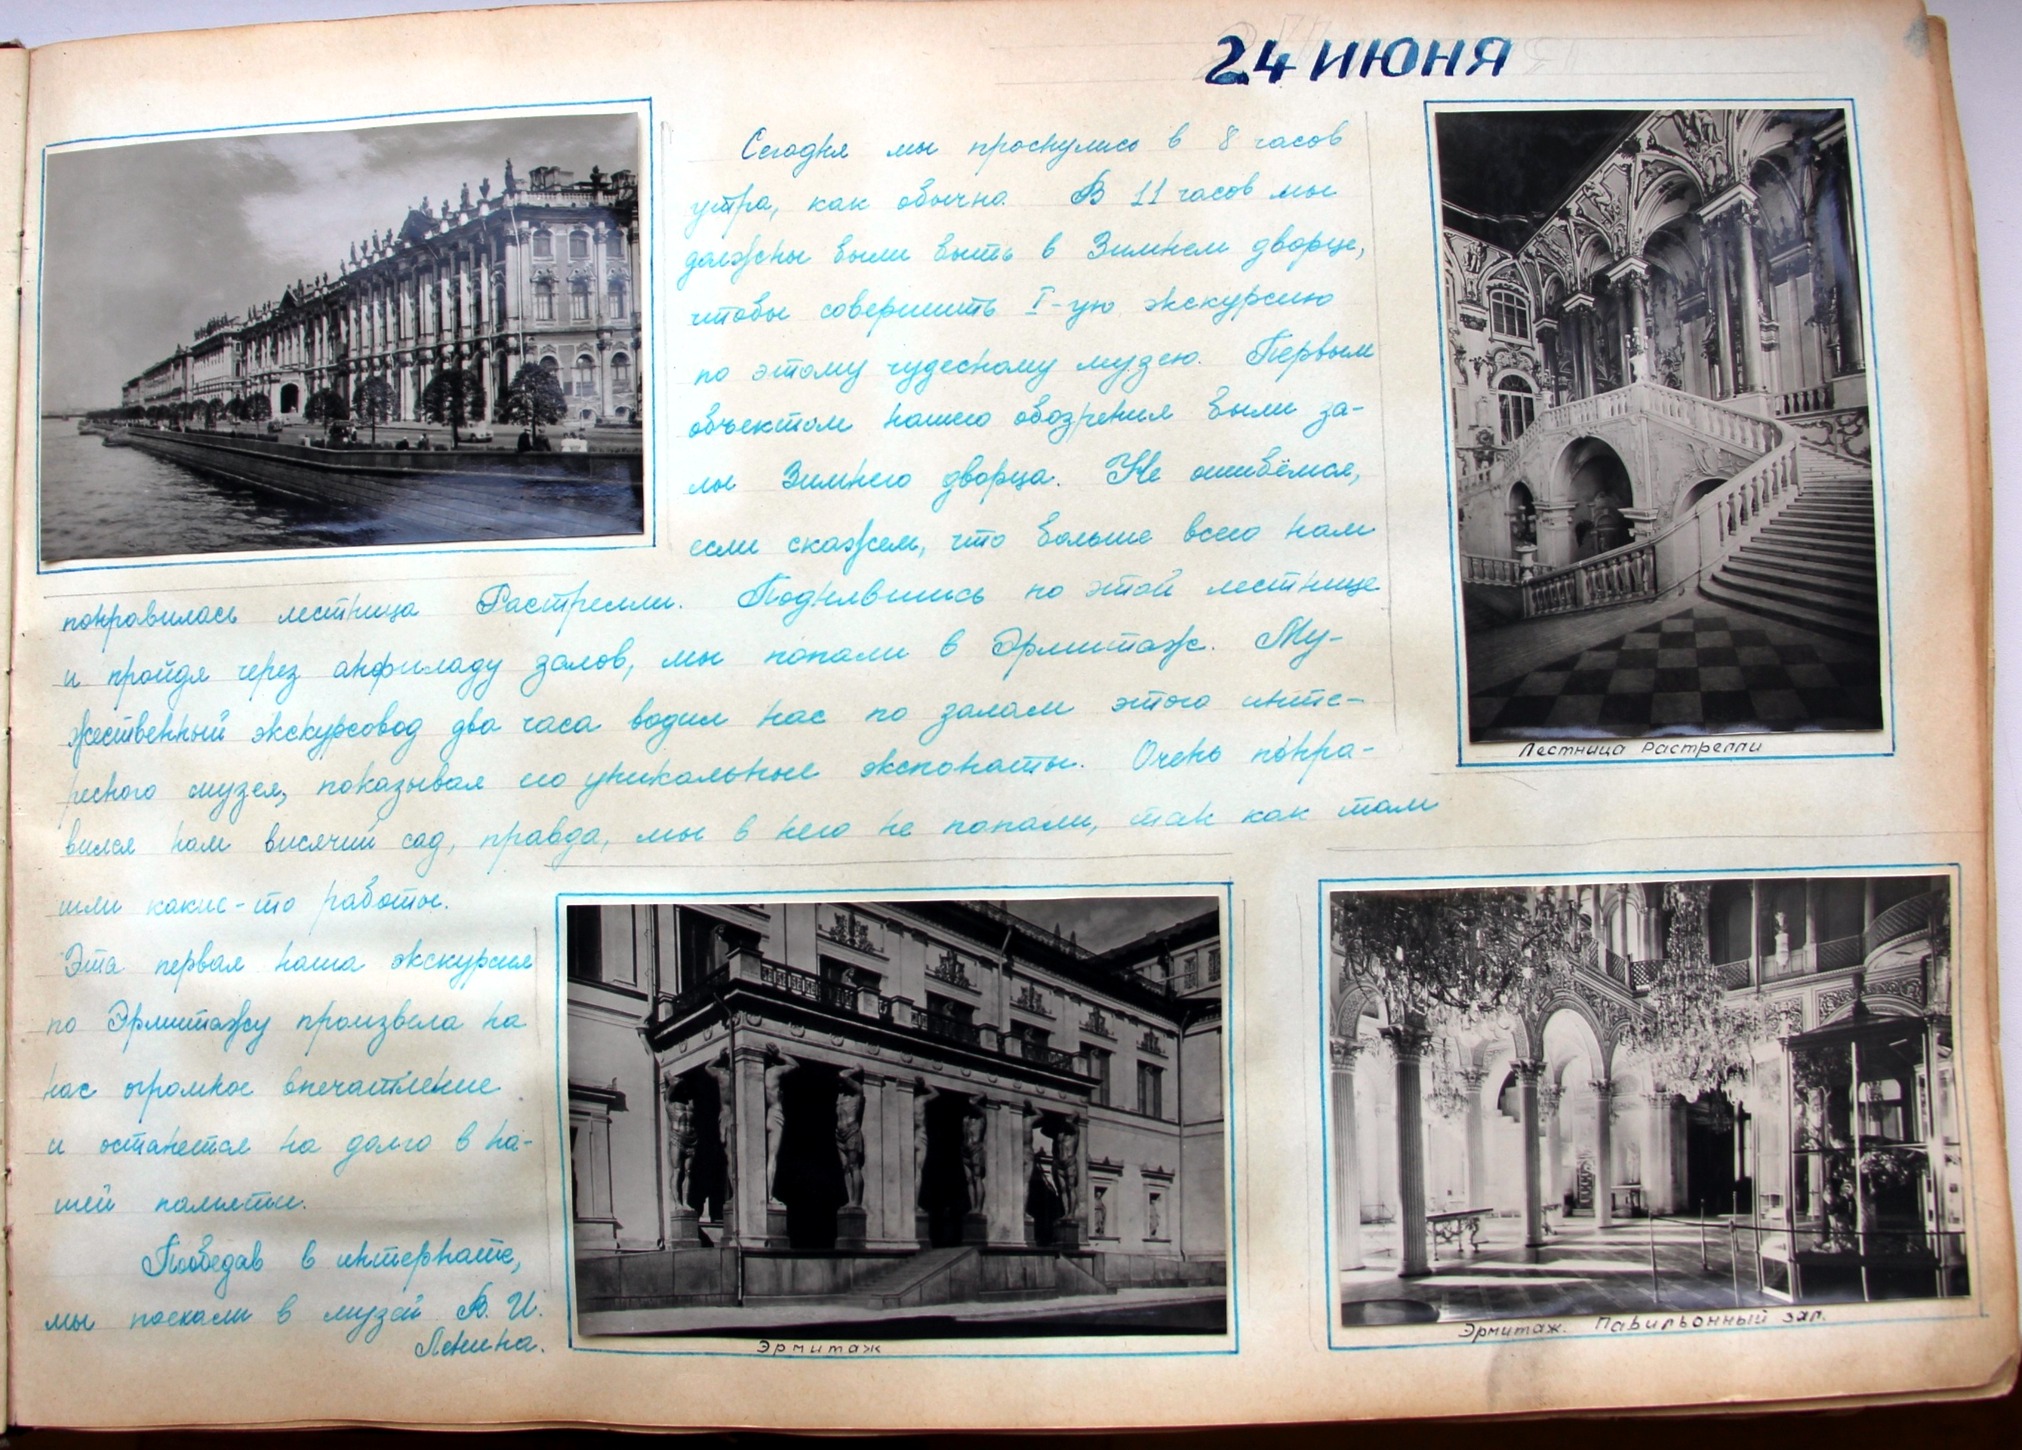 24 ИЮНЯ
Сегодня мы проснулись в 8 часов
утра, как обычно. В 11 часов мы
должны были быть в Зимнем дворце,
чтобы совершить I-ую экскурсию
по этому чудесному музею. Первым
объектом нашего обозрения были за-
лы Зимнего дворца. Не ошибёмся,
если скажем, что больше всего нам
понравилась лестница Растрелли. Поднявшись по этой лестнице
и пройдя через анфиладу залов, мы попали в Эрмитаж. Му-
жественный экскурсовод два часа водил нас по залам этого инте-
ресного музея, показывая его уникальные экспонаты. Очень понра-
вился нам висячий сад, правда, мы в него не попали, так как там
шли какие-то работы.
Эта первая наша экскурсия
по Эрмитажу произвела на
нас огромное впечатление
и останется на долго в на-
шей памяти.
Пообедав в интернате,
мы поехали в музей В. И.
Ленина.
Лестница Растрелли
Эрмитаж
Эрмитаж. Павильонный зал.